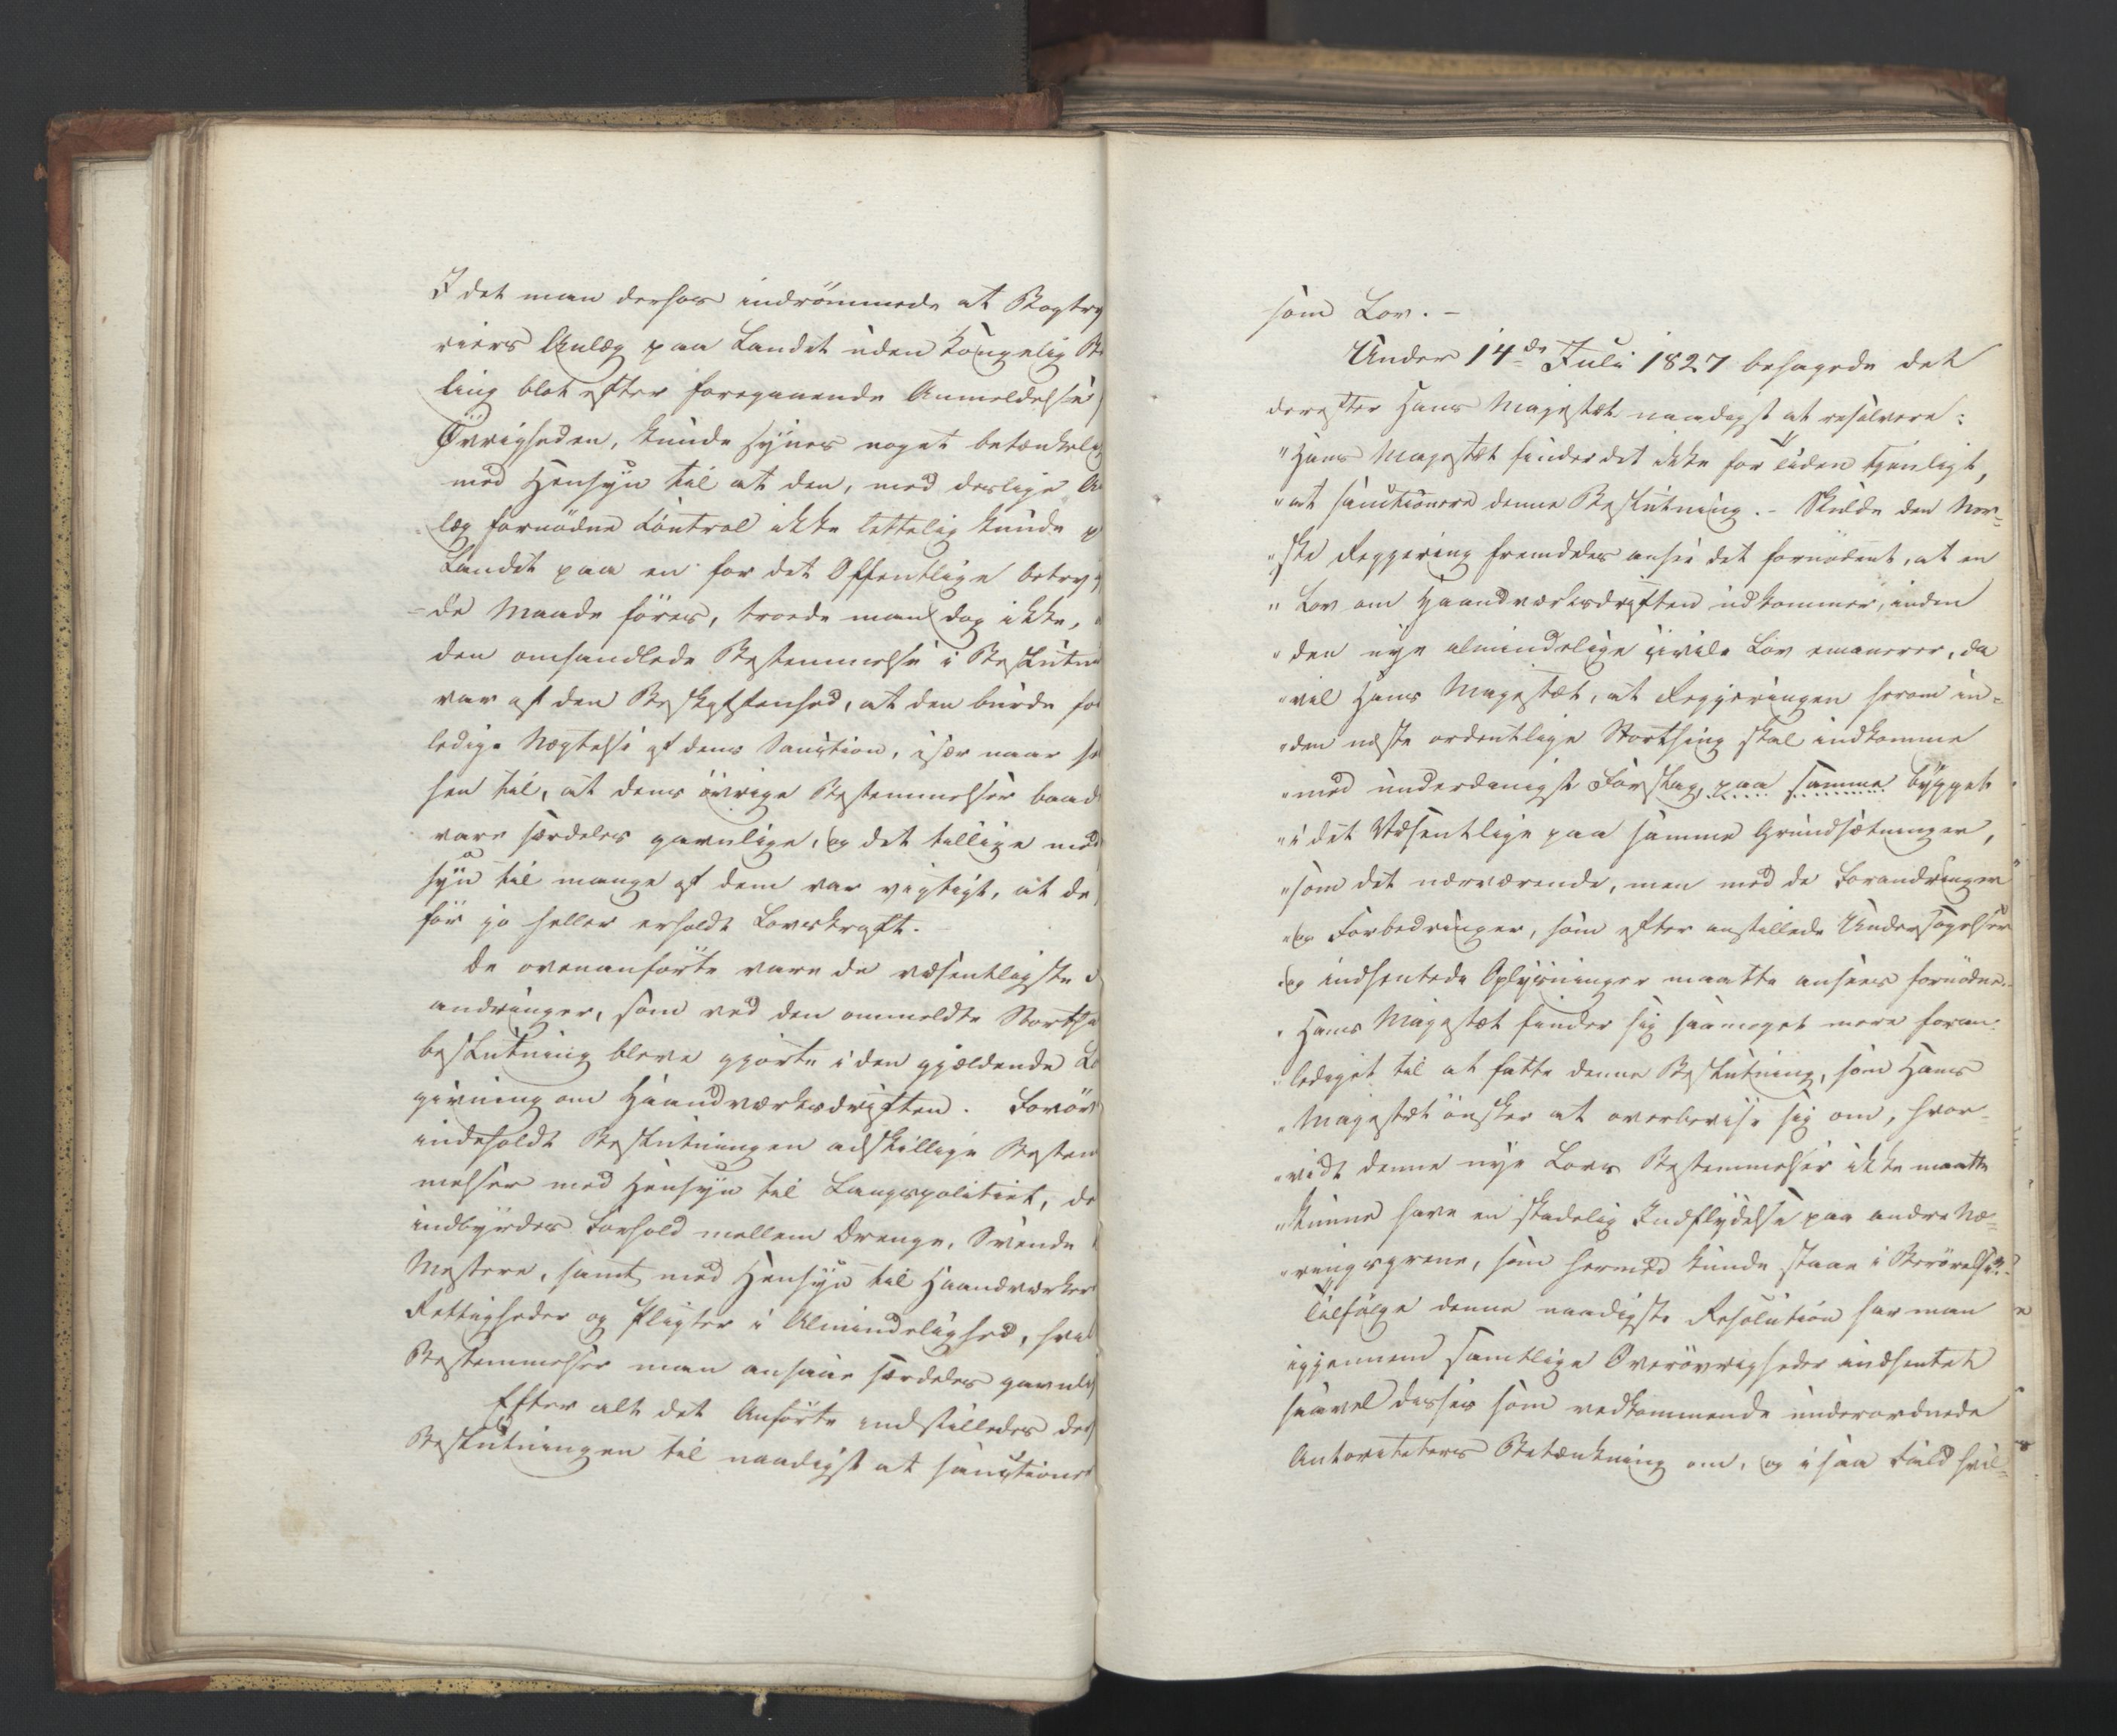 I det man derhos indrømmede at Bogtry
riers Anlæg paa Landet uden Kongelig Be
ling blot efter foregaaende Anmeldelse
Øvrigheden, kunde synes noget betænkelig
med Hensyn til at den, med deslige An
læg fornødne Control ikke lettelig kunde p
Landet paa en for det Offentlige betryg
-de Maade føres, troede man dog ikke, a
den omhandlede Bestemmelse i Beslutn
var af den Beskaffenhed, at den burde for
ledige Nægtelse af dens Sanction, især naar
hen til, at dens øvrige Bestemmelser baad
vare særdeles gavnlige, og det tillige med
syn til mange af dem var vigtigt, at de
før jo heller erholdt Lovskraft.
De ovenanførte vare de væsentligste
andringer, som ved den ommeldte Storthi
beslutning bleve gjorte i den gjældende Lo
givning om Haandværksdriften. Forøv
indeholdt Beslutningen adskillige Bestem
melser med Hensyn til Laugspolitiet, de
indbyrdes Forhold mellem Drenge, Svende
Mestere, samt med Hensyn til Haandværker
Rettigheder og Pligter i Almindelighed, hvil
Bestemmelser man ansaae særdeles gavnli
Efter alt det Anførte indstilledes den
Beslutningen til naadigst at sanctioner
som Lov. -
Under 14de Juli 1827 behagede det
derefter Hans Majestæt naadigst at resolvere:
"Hans Majestæt finder det ikke for Tiden tjenligt,
"at sanctionere denne Beslutning. - Skulde den Nor-
"ske Regjering fremdeles ansee det fornødent, at en
"Lov om Haandværksdriften udkommer, inden
"den nye almindelige civile Lov emanerer, da
"vil Hans Majestæt, at Regjeringen herom in-
"den næste ordentlige Storthing skal indkomme
"med underdanigst Forslag, paa samme bygget
"i det Væsentlige paa samme Grundsætninger,
"som det nærværende, men med de Forandringer
"og Forbedringer, som efter anstillede Undersøgelser
"og indhentede Oplysninger maatte ansees fornødne.
"Hans Majestæt finder sig saameget mere foran-
"lediget til at fatte denne Beslutning, som Hans
"Majestæt ønsker at overbevise sig om, hvor-
"vidt denne nye Lovs Bestemmelser ikke maatte
"kunne have en skadelig Indflydelse paa andre Næ-
"ringsgrene, som hermed kunde staae i Berørelse."
Tilfølge denne naadigste Resolution har man
igjennem samtlige Overøvrigheder indhentet
saavel disses som vedkommende underordnede
Autoriteters Betænkning om, og i saa Fald hvil-